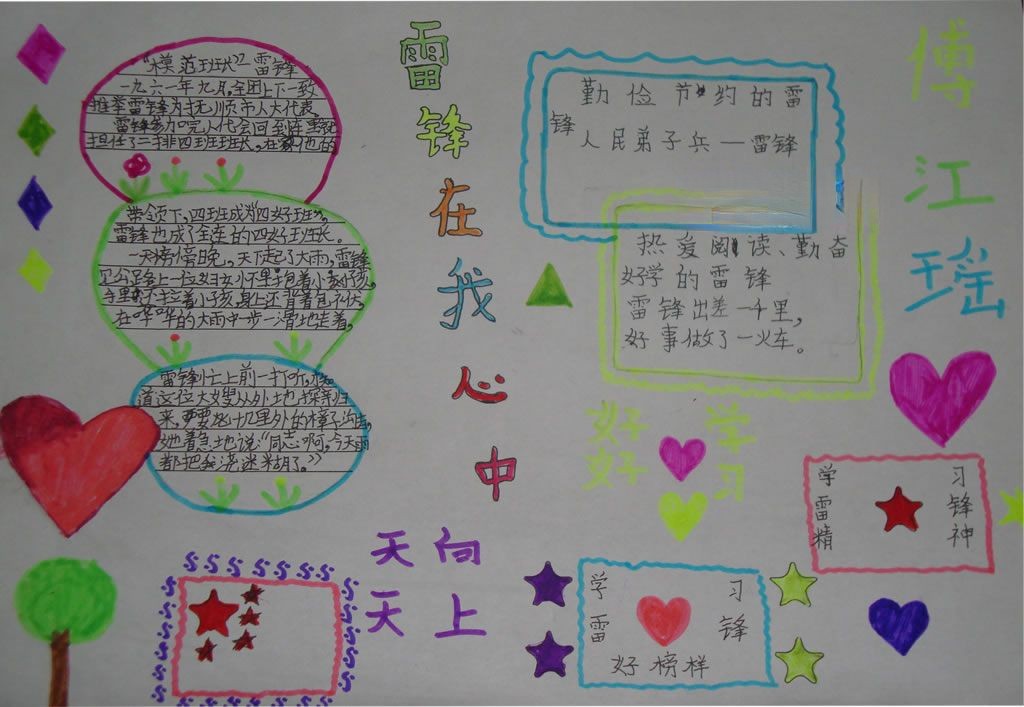 雷锋在我心中
傅江瑶
"模范班长"雷锋
一九六一年九月,全团上下一致
推举雷锋为抚顺市人大代表。
雷锋参加完人代会回到阵里就
担任了二排四班班长。在他的
带领下,四班成为"四好班",
雷锋也成了全连的四好班长。
一天傍晚,天下起了大雨,雷锋
在路上一位妇女怀里抱着小孩,
手里拉着小孩,身上还背着包伏,
在哗哗的大雨中一步一滑地走着。
雷锋忙上前一打听,才知
道这位大嫂从外地探亲归
来,要去十几里外的樟子沟去,
她着急地说"同志啊,今天雨
都把我浇迷糊了。"
勤俭节约的雷
锋
人民弟子兵—雷锋
热爱阅读、勤奋
好学的雷锋
雷锋出差一千里,
好事做了一火车。
好好
学习
天天
向上
学习
雷锋
精神
学习
雷锋
好榜样